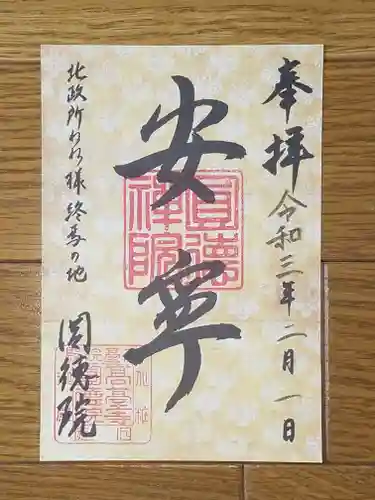 奉拝 令和三年二月一日
安寧
圓徳禅院
北政所ねね様 終焉の地
圓徳院